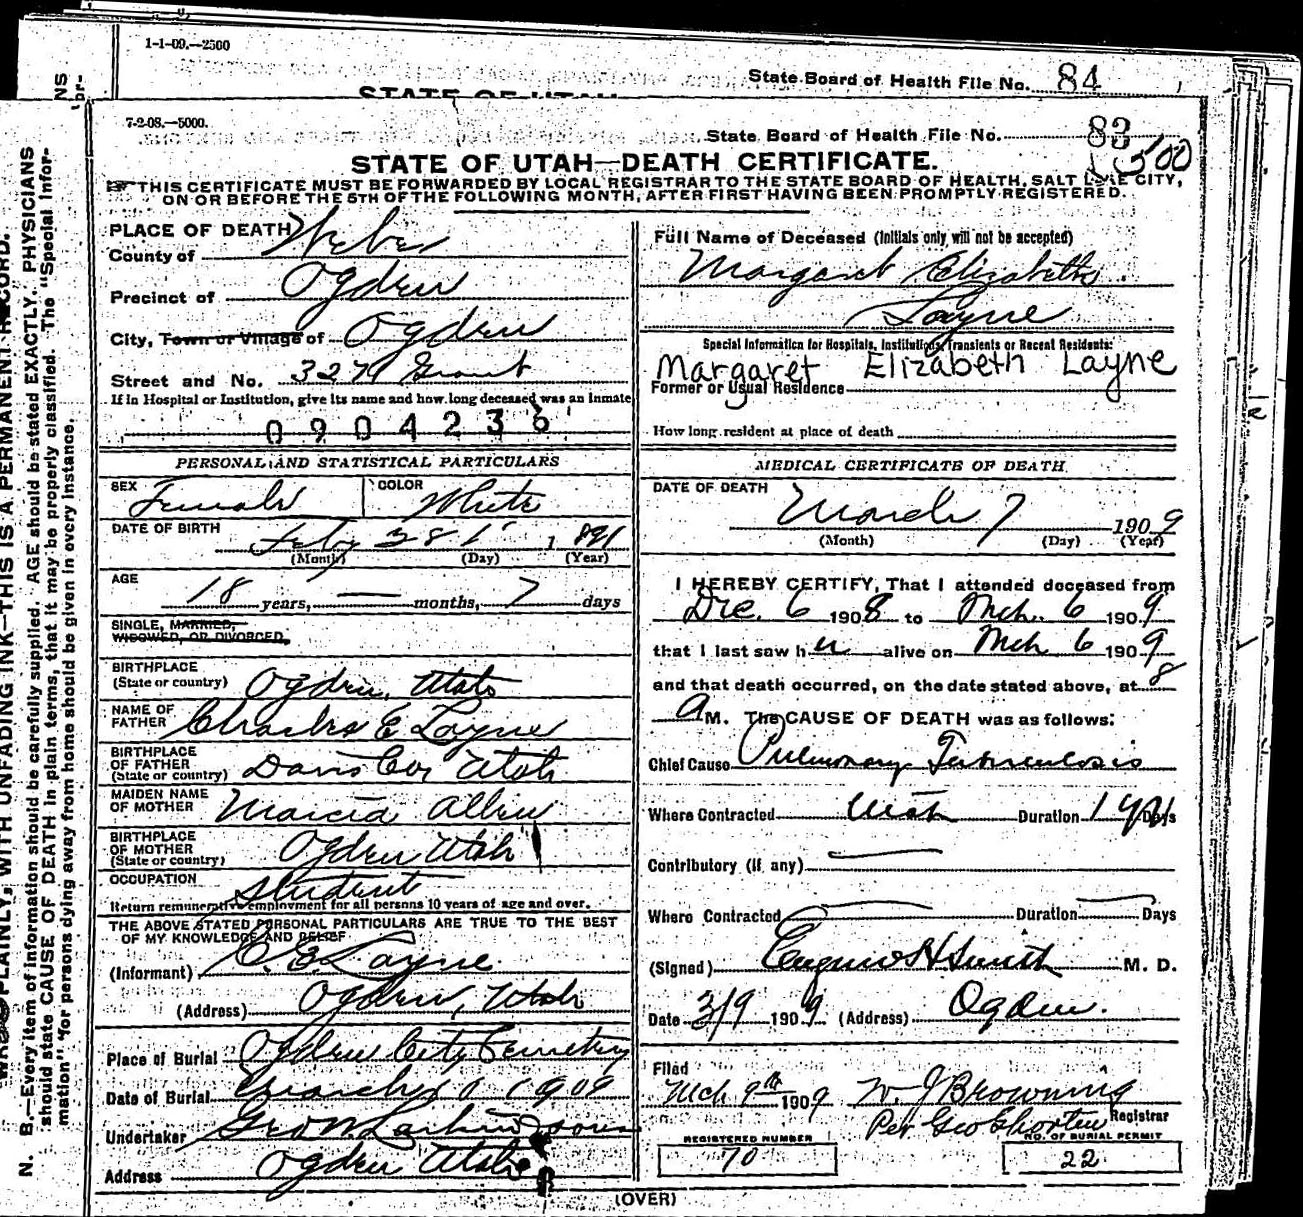 1-1-09.—2500
State Board of Health File No. 84
STATE OF UTAH
7-2-08.—5000.
State Board of Health File No. 83
1500
STATE OF UTAH—DEATH CERTIFICATE.
THIS CERTIFICATE MUST BE FORWARDED BY LOCAL REGISTRAR TO THE STATE BOARD OF HEALTH, SALT LAKE CITY,
ON OR BEFORE THE 5TH OF THE FOLLOWING MONTH, AFTER FIRST HAVING BEEN PROMPTLY REGISTERED.
PLACE OF DEATH
County of Weber
Precinct of Ogden
City, Town or Village of Ogden
Street and No. 3279 Grant
If in Hospital or Institution, give its name and how long deceased was an inmate
0904236
PERSONAL AND STATISTICAL PARTICULARS
SEX Female COLOR White
DATE OF BIRTH Feby 28 1891
(Month) (Day) (Year)
AGE 18 years, — months, 7 days
SINGLE, MARRIED,
WIDOWED, OR DIVORCED
BIRTHPLACE
(State or country) Ogden, Utah
NAME OF
FATHER Charles E Layne
BIRTHPLACE
OF FATHER
(State or country) Davis Co, Utah
MAIDEN NAME
OF MOTHER Marcia Allen
BIRTHPLACE
OF MOTHER
(State or country) Ogden Utah
OCCUPATION Student
Return remunerative employment for all persons 10 years of age and over.
THE ABOVE STATED PERSONAL PARTICULARS ARE TRUE TO THE BEST
OF MY KNOWLEDGE AND BELIEF
(Informant) C. E. Layne
(Address) Ogden, Utah
Place of Burial Ogden City Cemetery
Date of Burial March 1909
Undertaker Geo W Larkin Sons
Address Ogden Utah
Full Name of Deceased (Initials only will not be accepted)
Margaret Elizabeth
Layne
Special Information for Hospitals, Institutions, Transients or Recent Residents:
Margaret Elizabeth Layne
Former or Usual Residence
How long resident at place of death
MEDICAL CERTIFICATE OF DEATH
DATE OF DEATH
March 7 1909
(Month) (Day) (Year)
I HEREBY CERTIFY, That I attended deceased from
Dec. 6 1908 to Mch. 6 1909
that I last saw her alive on Mch 6 1909
and that death occurred, on the date stated above, at 8
A M. The CAUSE OF DEATH was as follows:
Chief Cause Pulmonary Tuberculosis
Where Contracted Utah Duration 1 yr Days
Contributory (if any) —
Where Contracted — Duration — Days
(Signed) Eugene H Smith M. D.
Date 3/9 1909 (Address) Ogden.
Filed
Mch 9th 1909 W. J Browning
Registrar
Per Geo Shorten
REGISTERED NUMBER
70
NO. OF BURIAL PERMIT
22
(OVER)
N. B.—Every item of information should be carefully supplied. AGE should be stated EXACTLY. PHYSICIANS
should state CAUSE OF DEATH in plain terms, that it may be properly classified. The "Special Infor-
mation" for persons dying away from home should be given in every instance.
PLAINLY, WITH UNFADING INK—THIS IS A PERMANENT RECORD.